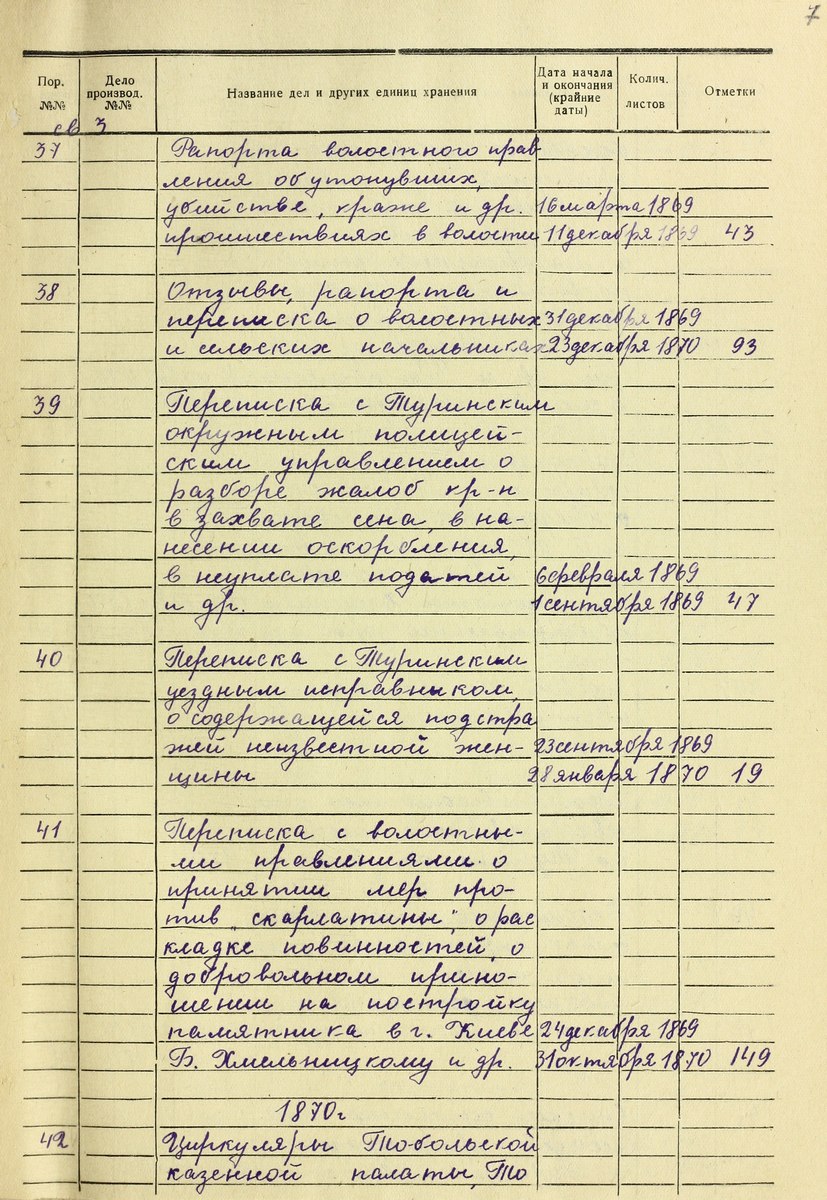 7
Пор. №№ Дело производ. №№ Название дел и других единиц хранения Дата начала и окончания (крайние даты) Колич. листов Отметки
св 3
37 Рапорта волостного прав-
ления об утонувших,
убийстве, краже и др. 16 марта 1869
проишествиях в волости 11 декабря 1869 43
38 Отзывы, рапорта и
переписка о волостных 31 декабря 1869
и сельских начальниках 23 декабря 1870 93
39 Переписка с Туринским
окружным полицей-
ским управлением о
разборе жалоб кр-н
в захвате сена, в на-
несении оскорбления,
в неуплате податей 6 февраля 1869
и др. 1 сентября 1869 47
40 Переписка с Туринским
уездным исправником
о содержащейся под стра
жей неизвестной жен- 23 сентября 1869
щины 28 января 1870 19
41 Переписка с волостны-
ми правлениями о
принятии мер про-
тив "скарлатины", о рас
кладке повинностей, о
добровольном прино-
шении на постройку
памятника в г. Киеве 24 декабря 1869
Б. Хмельницкому и др. 31 октября 1870 149
1870 г
42 Циркуляры Тобольской
казенной палаты, То